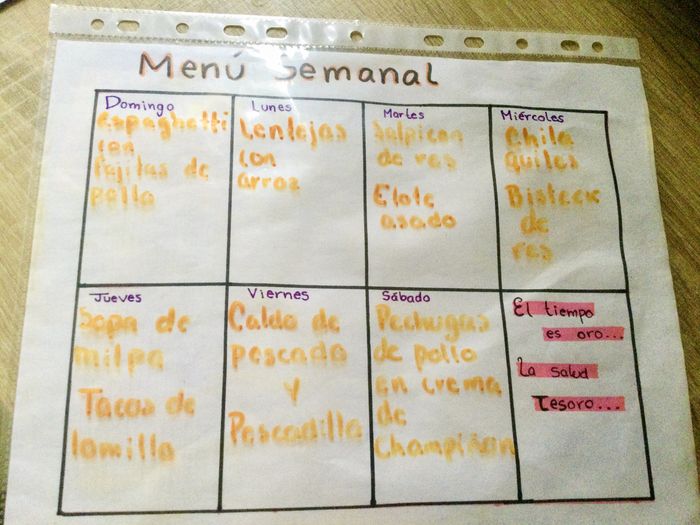 Menú Semanal
Domingo
espaghetti
con
fajitas de
pollo
Lunes
Lentejas
con
arroz
Martes
Salpicon
de res
Elote
asado
Miércoles
Chila
quiles
Bisteck
de
res
Jueves
Sopa de
milpa
Tacos de
lomillo
Viernes
Caldo de
pescado
y
Pescadilla
Sábado
Pechugas
de pollo
en crema
de
Champiñon
El tiempo
es oro...
La salud
Tesoro...